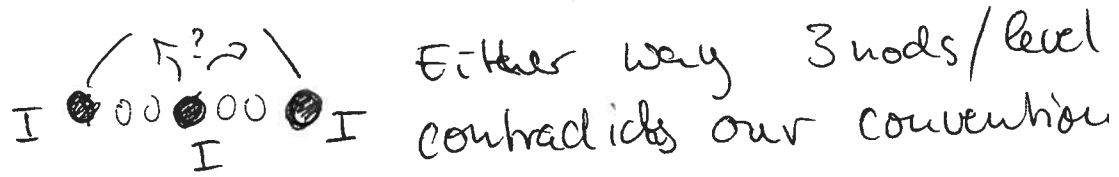 ?
Either way 3 nods/level
I I
I
contradicts our convention